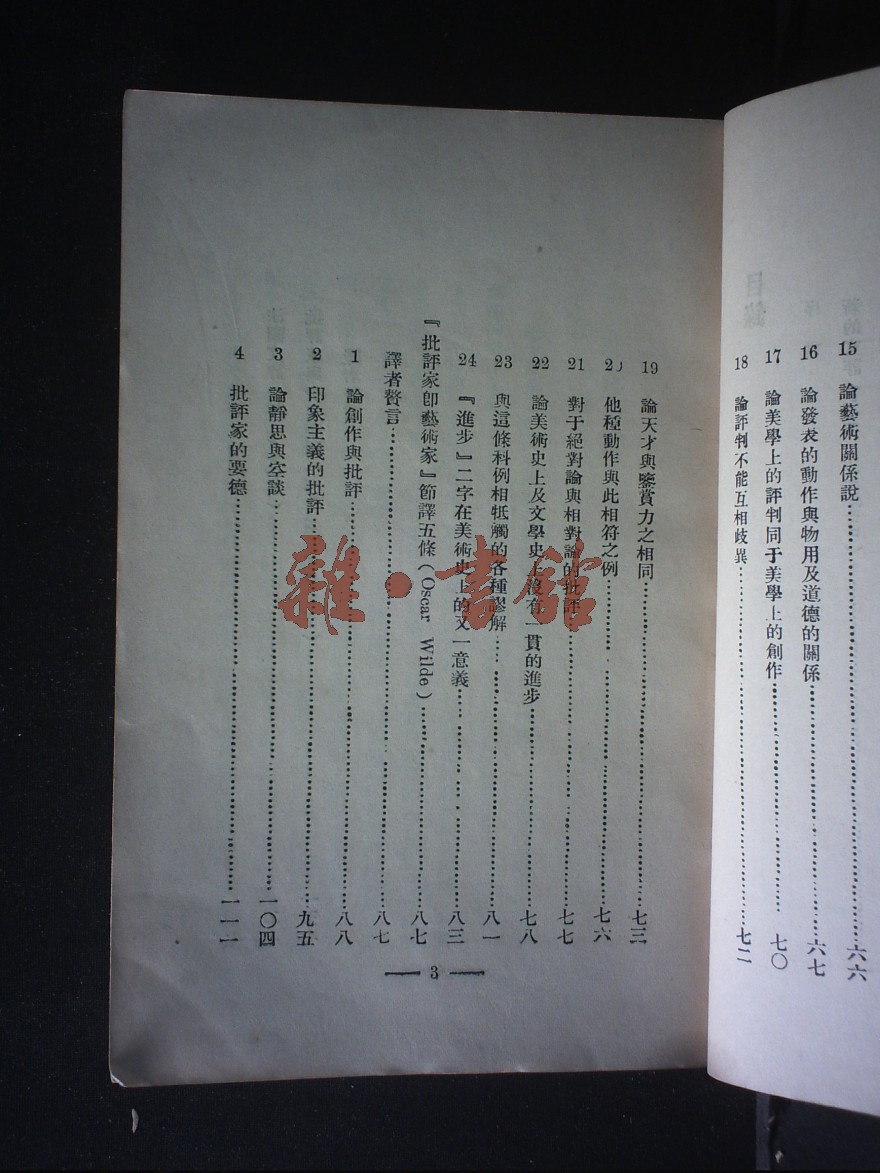 15 論藝術關係說……六六
16 論發表的動作與物用及道德的關係……六七
17 論美學上的評判同于美學上的創作……七〇
18 論評判不能互相歧異……七二
19 論天才與鑒賞力之相同……七三
20 他種動作與此相符之例……七六
21 對于絕對論與相對論的批評……七七
22 論美術史上及文學史上沒有一貫的進步……七八
23 與這條科例相牴觸的各種謬解……八一
24 『進步』二字在美術史上的又一意義……八三
『批評家卽藝術家』節譯五條(Oscar Wilde)……八七
譯者贅言……八七
1 論創作與批評……八八
2 印象主義的批評……九五
3 論靜思與空談……一〇四
4 批評家的要德……一一一
— 3 —
雜·書館